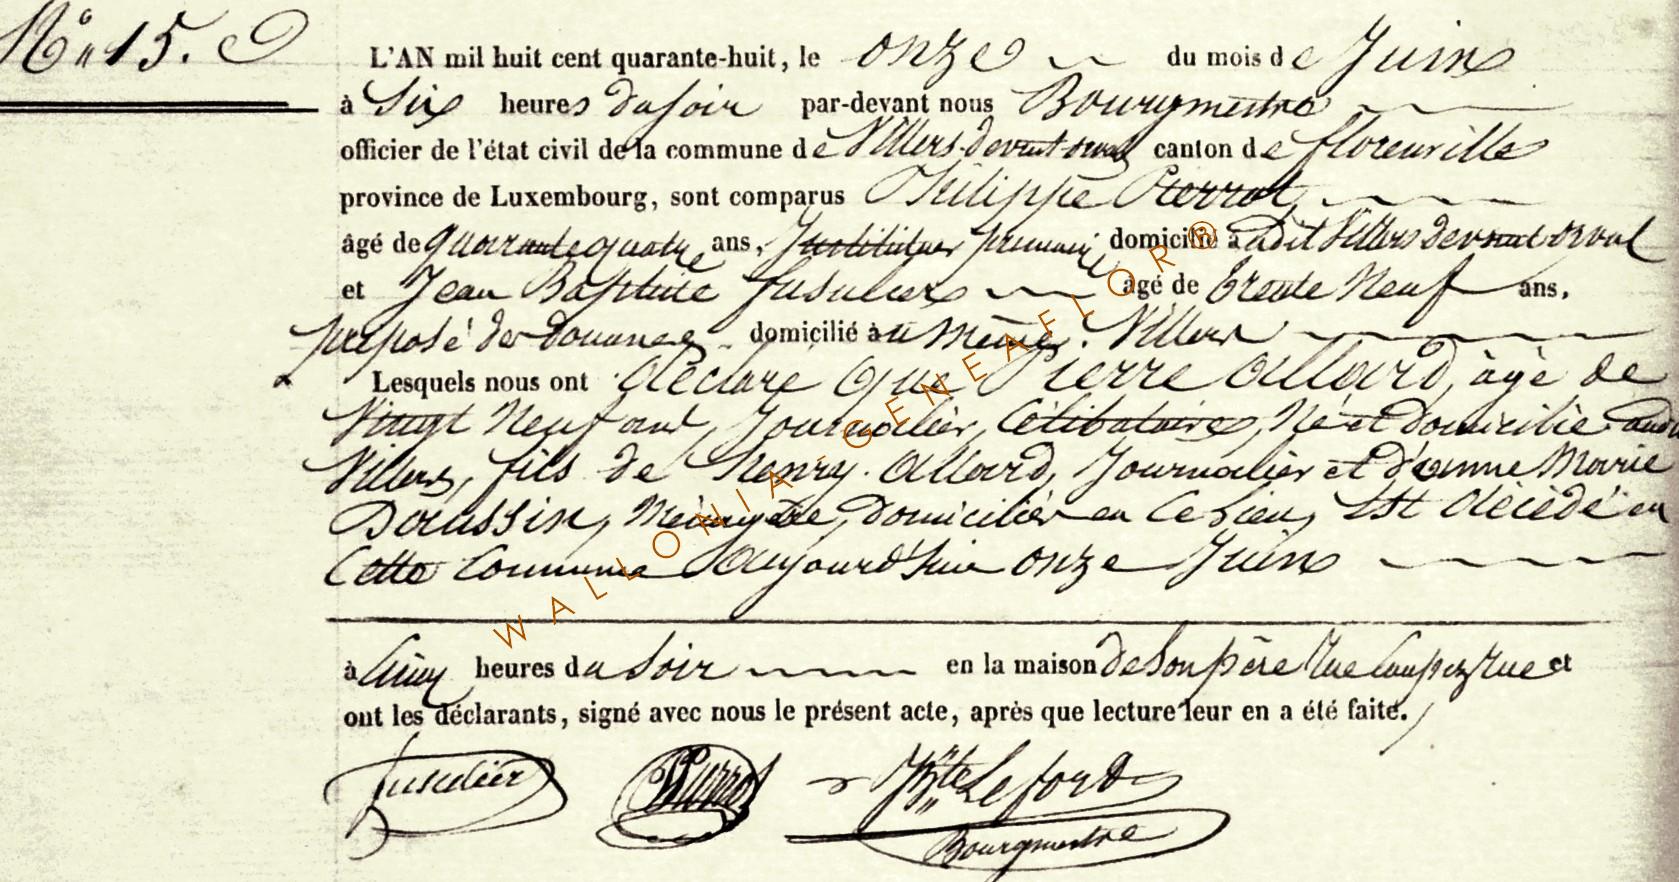 N° 15.
L'AN mil huit cent quarante-huit, le onze du mois de Juin
à Six heures du soir par-devant nous Bourgmestre
officier de l'état civil de la commune de Villers-devant-orval canton de florenville
province de Luxembourg, sont comparus Philippe Pierrot,
âgé de quarante quatre ans, Instituteur primaire domicilié audit Villers devant orval
et Jean Baptiste fusulier âgé de trente Neuf ans,
préposé des douanes domicilié au même Villers
Lesquels nous ont déclaré que Pierre Allard, âgé de
Vingt Neuf ans, Journalier, Célibataire, Né et domicilié audit
Villers, fils de Henry Allard, Journalier et d'anne Marie
Daussin, Ménagère, domiciliés en ce Lieu, Est décédé en
Cette Commune Aujourd'hui onze Juin
à Cinq heures du Soir en la maison de Son père Rue et
ont les déclarants, signé avec nous le présent acte, après que lecture leur en a été faite.
fusulier Pierrot JBte Leford
Bourgmestre
WALLONIA-GENEAFLOR®